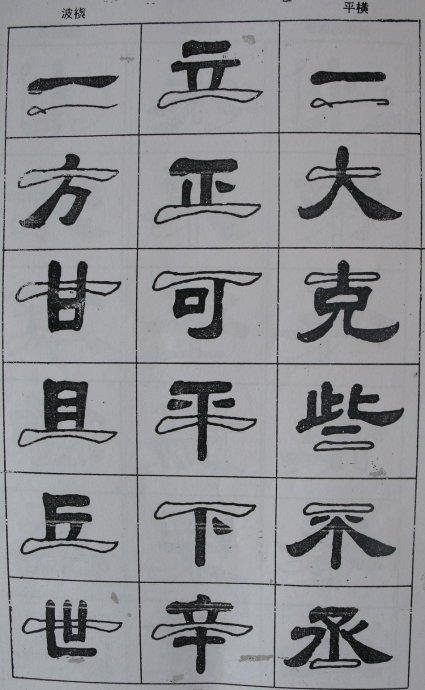 平橫
一大克些不丞
波橫
立正可平下辛
一方甘且丘世